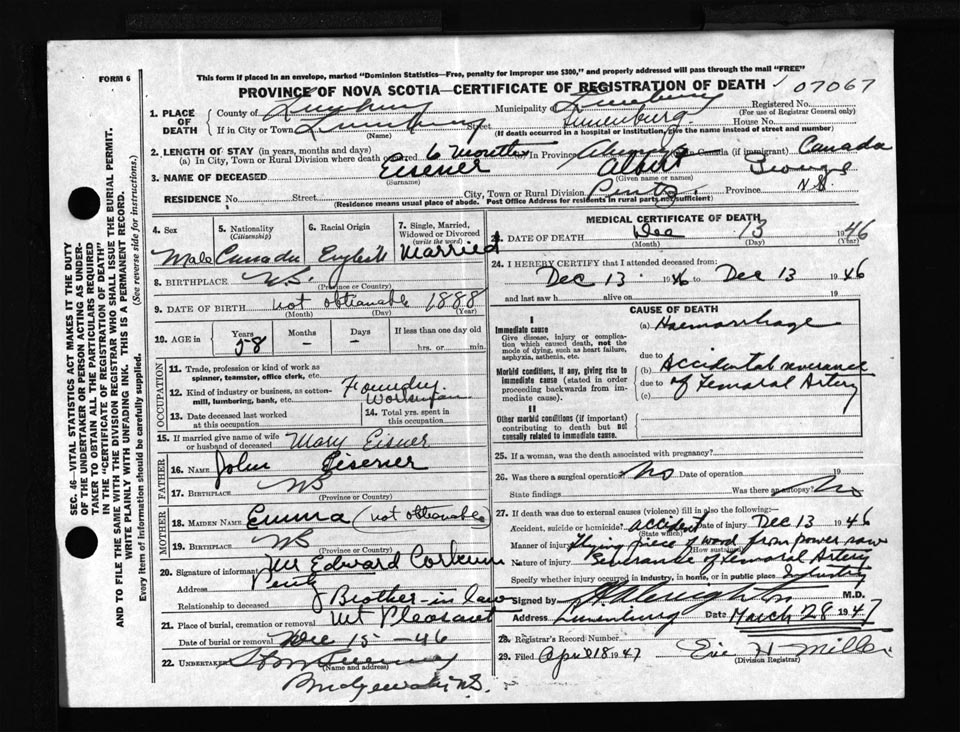 FORM 6
This form if placed in an envelope, marked "Dominion Statistics—Free, penalty for improper use $300," and properly addressed will pass through the mail "FREE"
PROVINCE OF NOVA SCOTIA—CERTIFICATE OF REGISTRATION OF DEATH
07067
SEC. 46—VITAL STATISTICS ACT MAKES IT THE DUTY
OF THE UNDERTAKER OR PERSON ACTING AS UNDER-
TAKER TO OBTAIN ALL THE PARTICULARS REQUIRED
IN THE "CERTIFICATE OF REGISTRATION OF DEATH"
AND TO FILE THE SAME WITH THE DIVISION REGISTRAR WHO SHALL ISSUE THE BURIAL PERMIT.
WRITE PLAINLY WITH UNFADING INK. THIS IS A PERMANENT RECORD.
Every item of information should be carefully supplied. (See reverse side for instructions.)
1. PLACE OF DEATH
County of Lunenburg Municipality of Lunenburg Registered No.
(For use of Registrar General only)
If in City or Town Lunenburg Street Lunenburg House No.
(Name) (If death occurred in a hospital or institution, give the name instead of street and number)
2. LENGTH OF STAY (in years, months and days)
(a) In City, Town or Rural Division where death occurred 6 months in Province Always in Canada (if immigrant) Canada
3. NAME OF DECEASED Eisener Albert George
(Surname) (Given name or names)
RESIDENCE No. Street City, Town or Rural Division Pentz. Province N.S.
(Residence means usual place of abode. Post Office Address for residents in rural parts not sufficient)
4. Sex Male
5. Nationality (Citizenship) Canada
6. Racial Origin English
7. Single, Married, Widowed or Divorced (write the word) Married
8. BIRTHPLACE N.S.
(Province or Country)
9. DATE OF BIRTH not obtianable 1888
(Month) (Day) (Year)
10. AGE in Years 58 Months – Days – If less than one day
hrs. or min.
OCCUPATION
11. Trade, profession or kind of work as spinner, teamster, office clerk, etc.
12. Kind of industry or business, as cotton-mill, lumbering, bank, etc. Foundry Workman
13. Date deceased last worked at this occupation
14. Total yrs. spent in this occupation
15. If married give name of wife or husband of deceased Mary Eisner
FATHER
16. NAME John Eisener
17. BIRTHPLACE NS
(Province or Country)
MOTHER
18. MAIDEN NAME Emma (not obtianable)
19. BIRTHPLACE NS
(Province or Country)
20. Signature of informant Mr Edward Corkum
Address Pentz
Relationship to deceased Brother-in law
21. Place of burial, cremation or removal Mt Pleasant
Date of burial or removal Dec 15 – 46
22. UNDERTAKER
(Name and address)
MEDICAL CERTIFICATE OF DEATH
DATE OF DEATH Dec 13 1946
(Month) (Day) (Year)
24. I HEREBY CERTIFY that I attended deceased from:
Dec 13 1946 to Dec 13 1946
and last saw h alive on 19
CAUSE OF DEATH
I
Immediate cause
Give disease, injury or complication which caused death, not the mode of dying, such as heart failure, asphyxia, asthenia, etc.
(a) Haemorrhage
due to
Morbid conditions, if any, giving rise to immediate cause (stated in order proceeding backwards from immediate cause).
(b) Accidental severance
due to of Femoral Artery
(c)
II
Other morbid conditions (if important) contributing to death but not causally related to immediate cause.
25. If a woman, was the death associated with pregnancy?
26. Was there a surgical operation? No Date of operation 19
State findings Was there an autopsy? No
27. If death was due to external causes (violence) fill in also the following:—
Accident, suicide or homicide? accident Date of injury Dec 13 1946
(State which)
Manner of injury Flying piece of wood from power saw
(How sustained)
Nature of injury Severance of Femoral Artery
Specify whether injury occurred in industry, in home, or in public place Industry
Signed by M.D.
Address Lunenburg Date March 28 1947
28. Registrar's Record Number
29. Filed April 18 1947 H Miller
(Division Registrar)